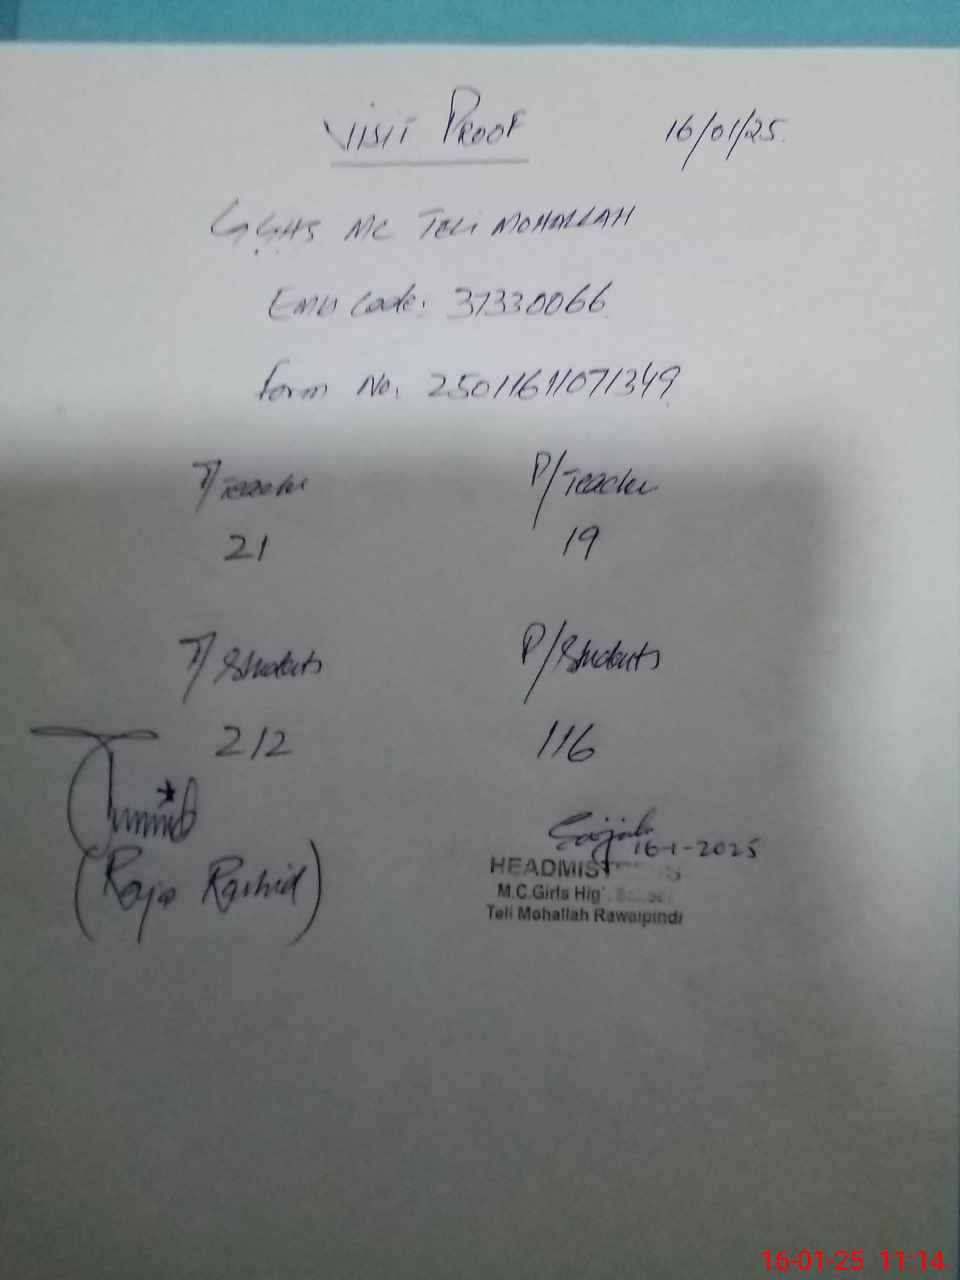 VISIT PROOF 16/01/25.
GGHS MC TELI MOHALLAH
EMIS Code: 37330066
Form No. 25011611071349
T/Teacher P/Teacher
21 19
T/Students P/Students
212 116
16-1-2025
(Raja Rashid)
HEADMIS
M.C.Girls Hig
Teli Mohallah Rawalpindi
16-01-25 11:14